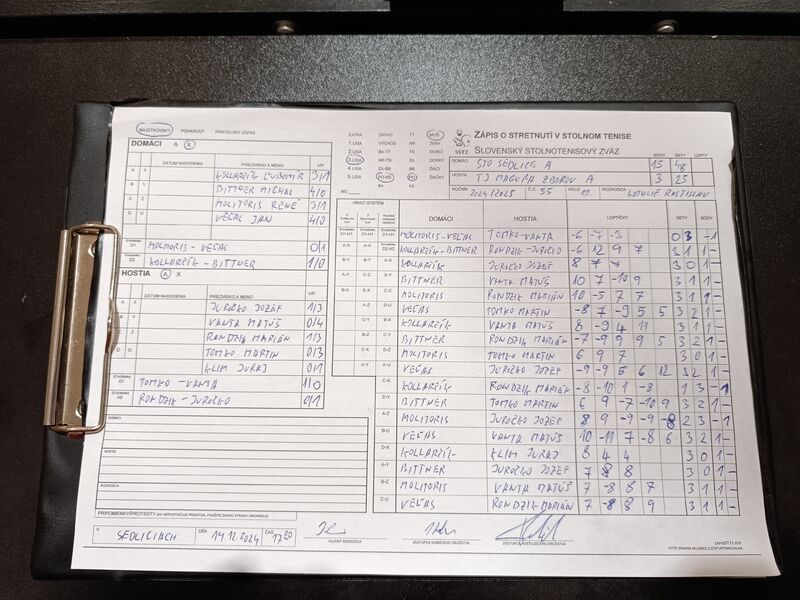 MAJSTROVSKÝ POHÁROVÝ PRIATEĽSKÝ ZÁPAS
DOMÁCI A X
DÁTUM NARODENIA PRIEZVISKO A MENO V/P
A X KOLLARČÍK ĽUBOMÍR 3/1
B Y BITTNER MICHAL 4/0
C Z MOLITORIS RENÉ 3/1
D U VEČAS JÁN 4/0
D1 MOLITORIS - VEČAS 0/1
D2 KOLLARČÍK - BITTNER 1/0
HOSTIA A X
DÁTUM NARODENIA PRIEZVISKO A MENO V/P
A X JUROČKO JOZEF 1/3
B Y VANTA MATÚŠ 0/4
C Z RONDZIK MARIÁN 1/3
D U TOMKO MARTIN 0/3
KLIM JURAJ 0/1
D1 TOMKO - VANTA 1/0
D2 RONDZIK - JUROČKO 0/1
DOMÁCI
HOSTIA
ROZHODCA
PRIPOMIENKY/PROTESTY (AK NEPOSTAČUJE PRIESTOR, POUŽITE ZADNÚ STRANU ORIGINÁLU)
V SEDLICIACH DŇA 14.12.2024 ČAS
HLAVNÝ ROZHODCA ZÁSTUPCA DOMÁCEHO DRUŽSTVA ZÁSTUPCA HOSŤUJÚCEHO DRUŽSTVA
EXTRA ZÁPAD TT MUŽI
1.LIGA VÝCHOD NR ŽENY
2.LIGA BA-TT TN DORCI
3.LIGA NR-TN ZA DORKY
4.LIGA ZA-BB BB ŽIACI
5.LIGA PO-KE PO ŽIAČKY
BA KE
MO
SSTZ
ZÁPIS O STRETNUTÍ V STOLNOM TENISE
SLOVENSKÝ STOLNOTENISOVÝ ZVÄZ
BODY SETY LOPTY
DOMÁCI STO SEDLICE A 15 48
HOSTIA TJ MAGURA ZBOROV A 3 25
ROČNÍK 2024/2025 Č.Z. 55 KOLO ROZHODCA
HRACÍ SYSTÉM
DOMÁCI HOSTIA LOPTIČKY SETY BODY
MOLITORIS-VEČAS TOMKO-VANTA -6 -7 -3 0 3 - 1
KOLLARČÍK-BITTNER RONDZIK-JUROČKO -6 12 9 7 3 1 1 -
KOLLARČÍK JUROČKO JOZEF 8 7 7 3 0 1 -
BITTNER VANTA MATÚŠ 10 7 -10 9 3 1 1 -
MOLITORIS RONDZIK MARIÁN 10 -5 7 7 3 1 1 -
VEČAS TOMKO MARTIN -8 7 -9 5 5 3 2 1 -
KOLLARČÍK VANTA MATÚŠ 8 -9 4 11 3 1 1 -
BITTNER RONDZIK MARIÁN -7 -9 9 9 5 3 2 1 -
MOLITORIS TOMKO MARTIN 6 9 7 3 0 1 -
VEČAS JUROČKO JOZEF -9 -9 5 6 12 3 2 1 -
KOLLARČÍK RONDZIK MARIÁN -8 -10 1 -8 1 3 - 1
BITTNER TOMKO MARTIN 6 9 -7 -10 9 3 2 1 -
MOLITORIS JUROČKO JOZEF 8 9 -9 -9 -8 2 3 - 1
VEČAS VANTA MATÚŠ 10 -11 7 -8 6 3 2 1 -
KOLLARČÍK KLIM JURAJ 8 4 4 3 0 1 -
BITTNER JUROČKO JOZEF 7 8 8 3 0 1 -
MOLITORIS VANTA MATÚŠ 7 -8 8 7 3 1 1 -
VEČAS RONDZIK MARIÁN 7 -8 8 9 3 1 1 -